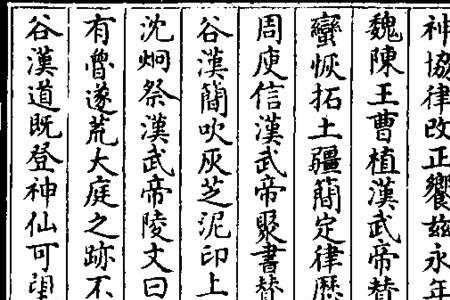 神協律改正饗兹永年
魏陳王曹植漢武帝賛
蠻恢拓土疆簡定律歷
周庾信漢武帝聚書賛
谷漢簡吹灰芝泥印上
沈炯祭漢武帝陵文曰
有魯遂荒大庭之跡不
谷漢道既登神仙可望